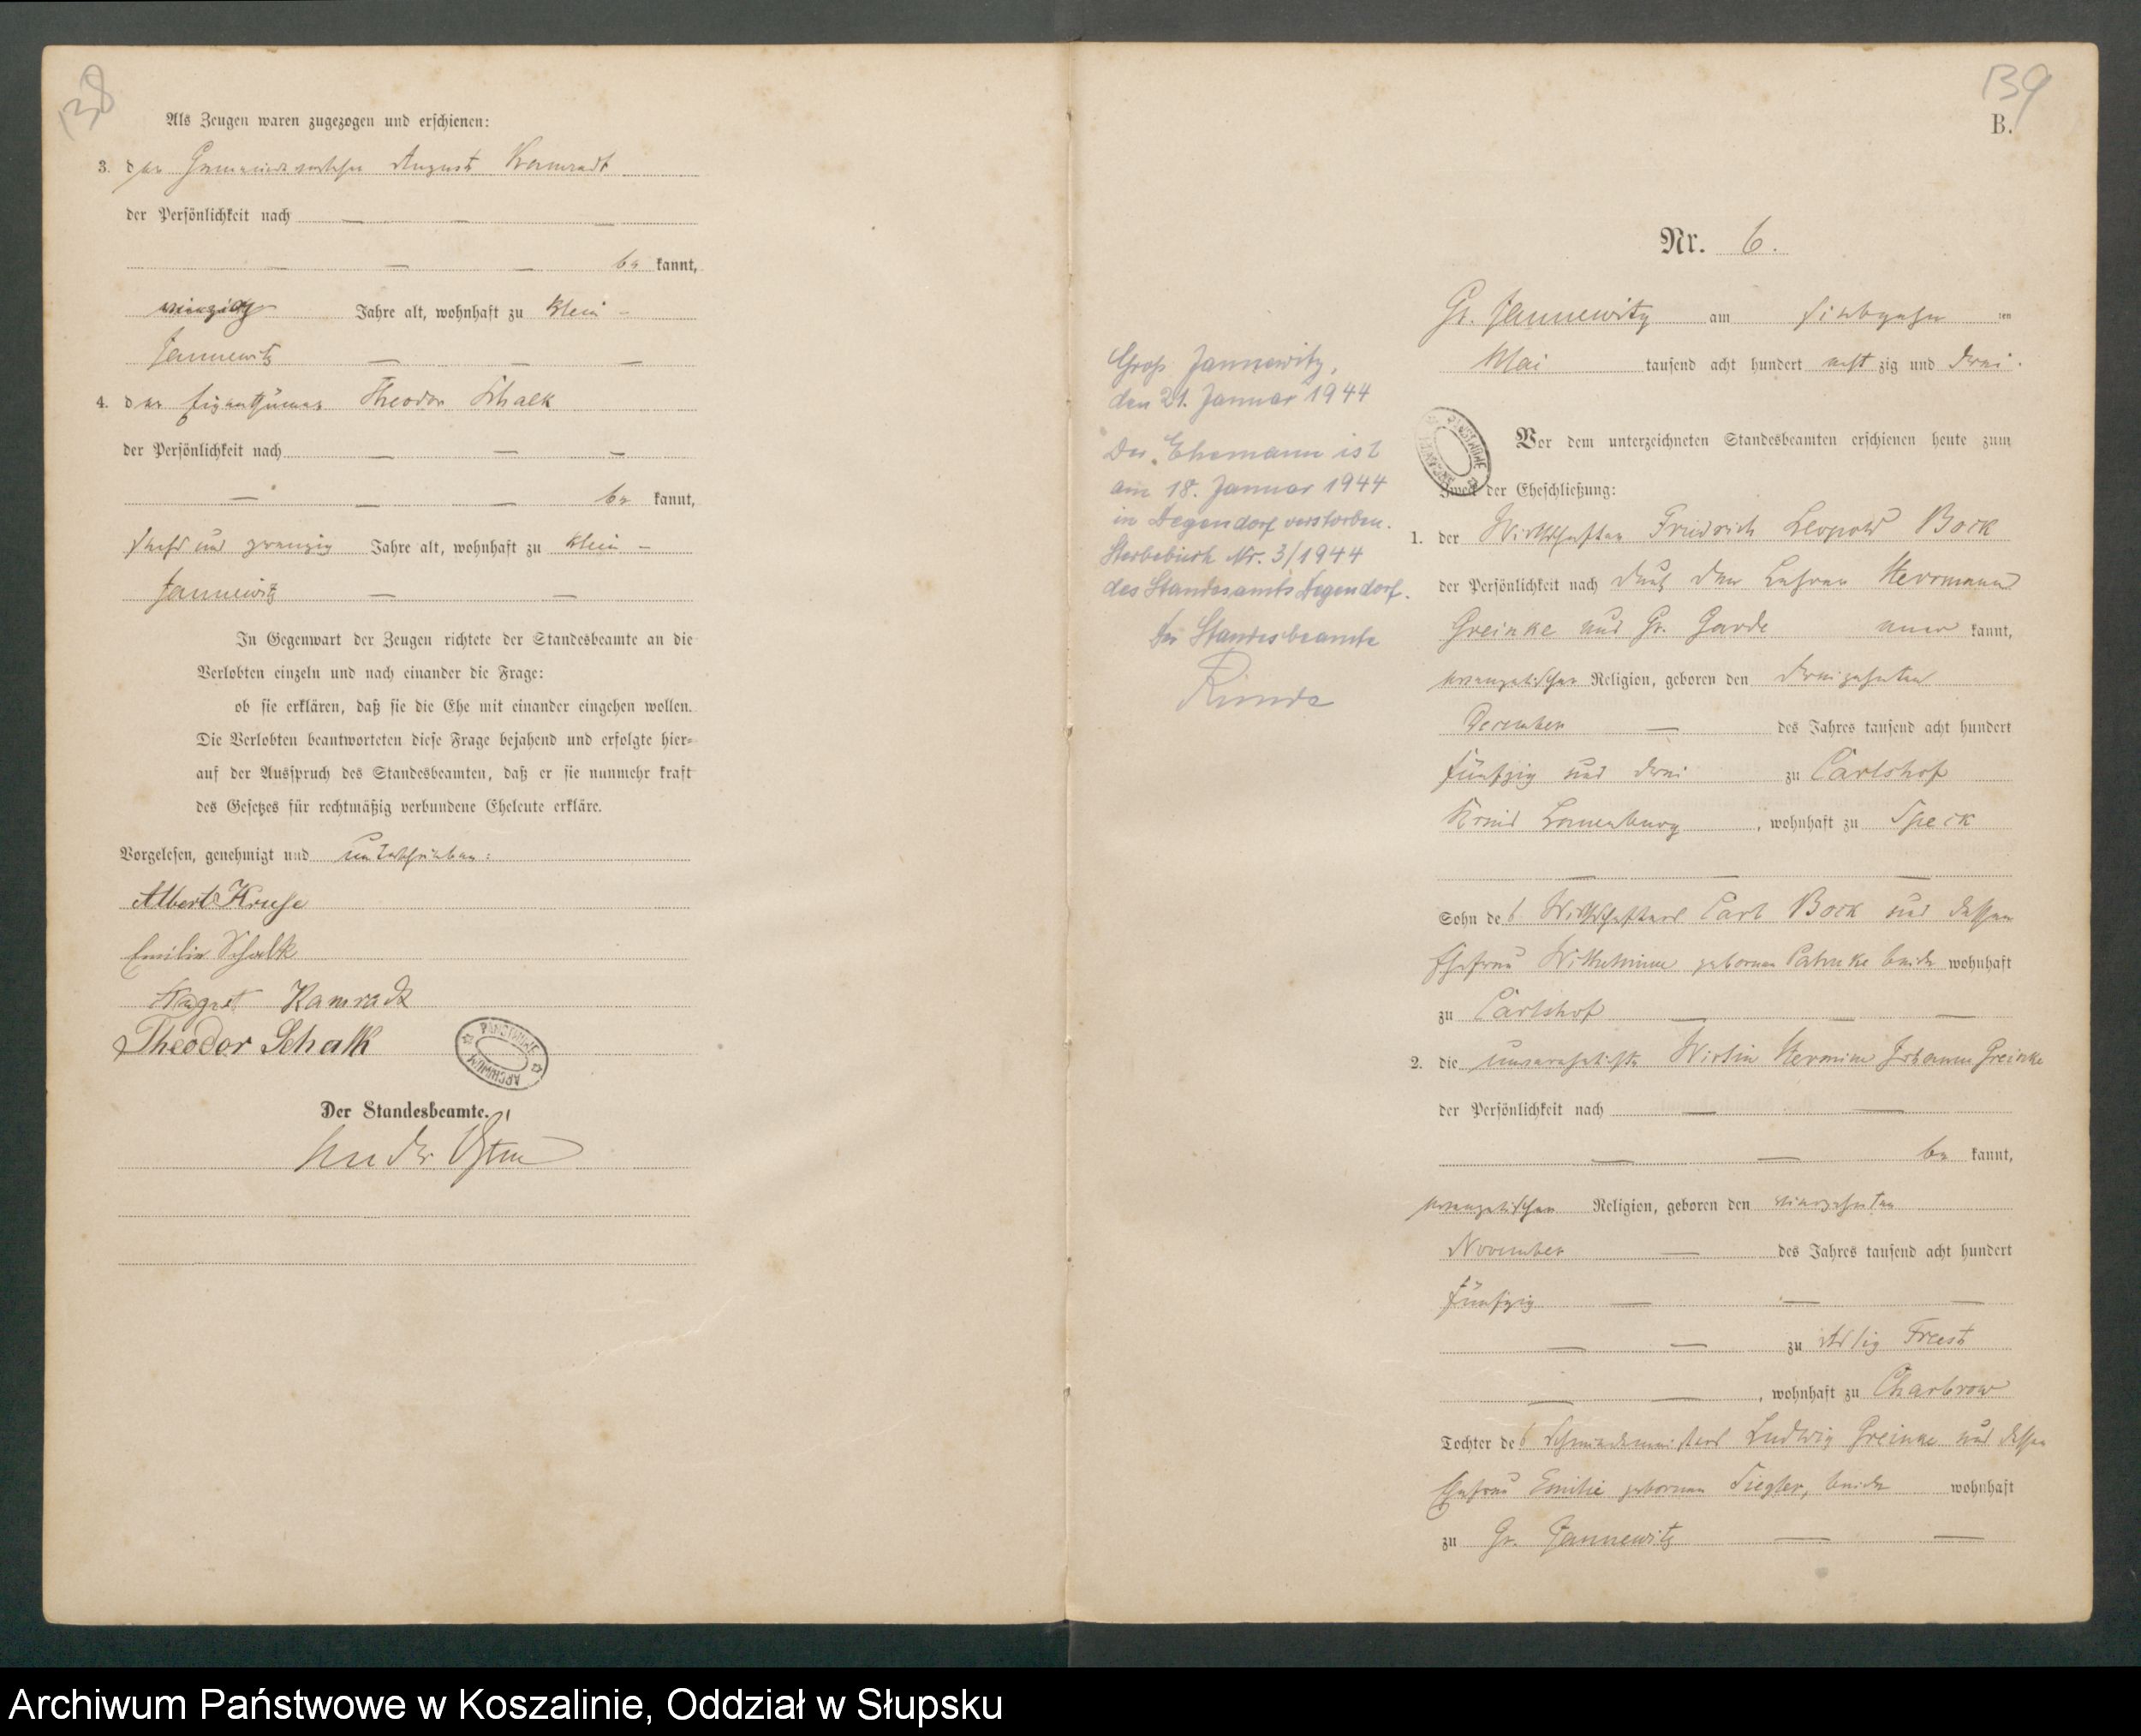 138
Als Zeugen waren zugezogen und erschienen:
3. der Gemeindevorsteher August Kamradt
der Persönlichkeit nach
be kannt,
vierzig Jahre alt, wohnhaft zu Klein-
Jannewitz
4. der Eigenthümer Theodor Schalk
der Persönlichkeit nach
be kannt,
sechs und zwanzig Jahre alt, wohnhaft zu Klein-
Jannewitz
In Gegenwart der Zeugen richtete der Standesbeamte an die
Verlobten einzeln und nach einander die Frage:
ob sie erklären, daß sie die Ehe mit einander eingehen wollen.
Die Verlobten beantworteten diese Frage bejahend und erfolgte hier-
auf der Ausspruch des Standesbeamten, daß er sie nunmehr kraft
des Gesetzes für rechtmäßig verbundene Eheleute erkläre.
Vorgelesen, genehmigt und unterschrieben:
Albert Kruse
Emilie Schalk
August Kamradt
Theodor Schalk
PAŃSTWOWE ARCHIWUM
Der Standesbeamte.
139
B.
Nr. 6.
Gr. Jannewitz am siebzehn ten
Mai tausend acht hundert acht zig und drei.
Vor dem unterzeichneten Standesbeamten erschienen heute zum
Zweck der Eheschließung:
1. der Wirthschafter Friedrich Leopold Bock
der Persönlichkeit nach durch den Lehrer Herrmann
Greinke aus Gr. Garde aner kannt,
evangelischer Religion, geboren den dreizehnten
December des Jahres tausend acht hundert
fünfzig und drei zu Carlshof
Kreis Lauenburg, wohnhaft zu Speck
Sohn des Wirthschafters Carl Bock und dessen
Ehefrau Wilhelmine geborenen Pahnke beide wohnhaft
zu Carlshof
2. die unverehelichte Wirtin Hermine Johanne Greinke
der Persönlichkeit nach
be kannt,
evangelischer Religion, geboren den vierzehnten
November des Jahres tausend acht hundert
fünfzig
zu Adlig Freest
, wohnhaft zu Charbrow
Tochter des Schmiedemeisters Ludwig Greinke und dessen
Ehefrau Emilie geborenen Ziegler, beide wohnhaft
zu Gr. Jannewitz
Groß Jannewitz,
den 21. Januar 1944
Der Ehemann ist
am 18. Januar 1944
in Degendorf verstorben.
Sterbebuch Nr. 3/1944
des Standesamts Degendorf.
Der Standesbeamte
PAŃSTWOWE ARCHIWUM
Archiwum Państwowe w Koszalinie, Oddział w Słupsku